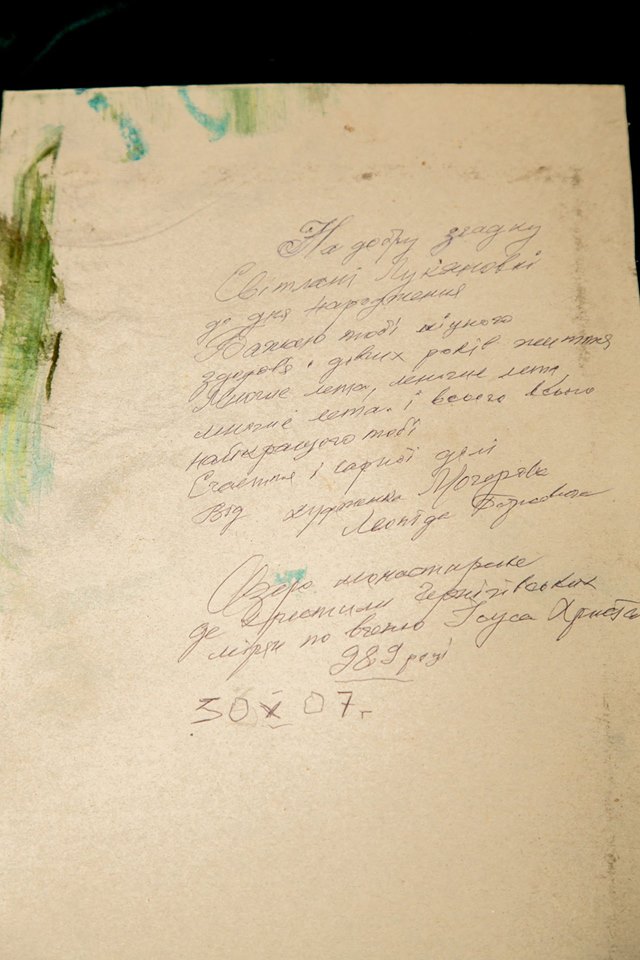 На добру згадку
Світлані Лук'яновні
до дня народження
Бажаю тобі міцного
здоров'я, довгих років життя
Многие лета, многие лета,
многие лета. і всего всього
найкращого тобі
Счастя і гарної долі
Від художника
Леоніда
Озеро монастирське
де хрестили Чернігівських
мірян по вченню Ісуса Христа
989 році
30 X 07 г